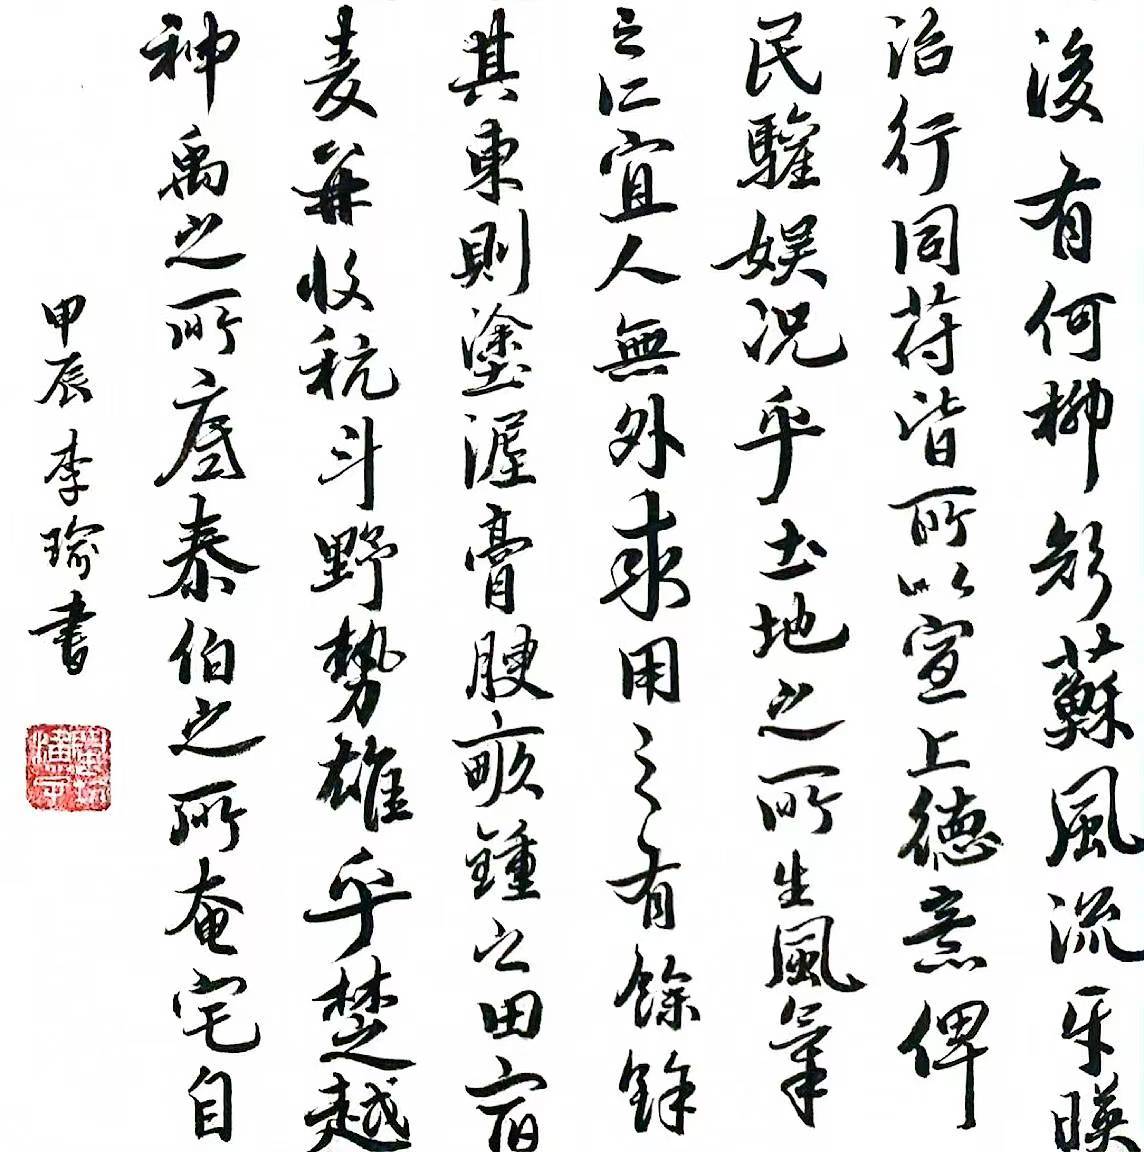 後有何柳顏蘇風流牙暎
治行同苻皆所以宣上德意俾
民驩娛況乎土地之所生風氣
之所宜人無外求用之有餘餘
其東則塗渥膏腴畝鍾之田宿
麦再收秔斗野勢雄乎楚越
神禹之所底泰伯之所奄宅自
甲辰李瑜書